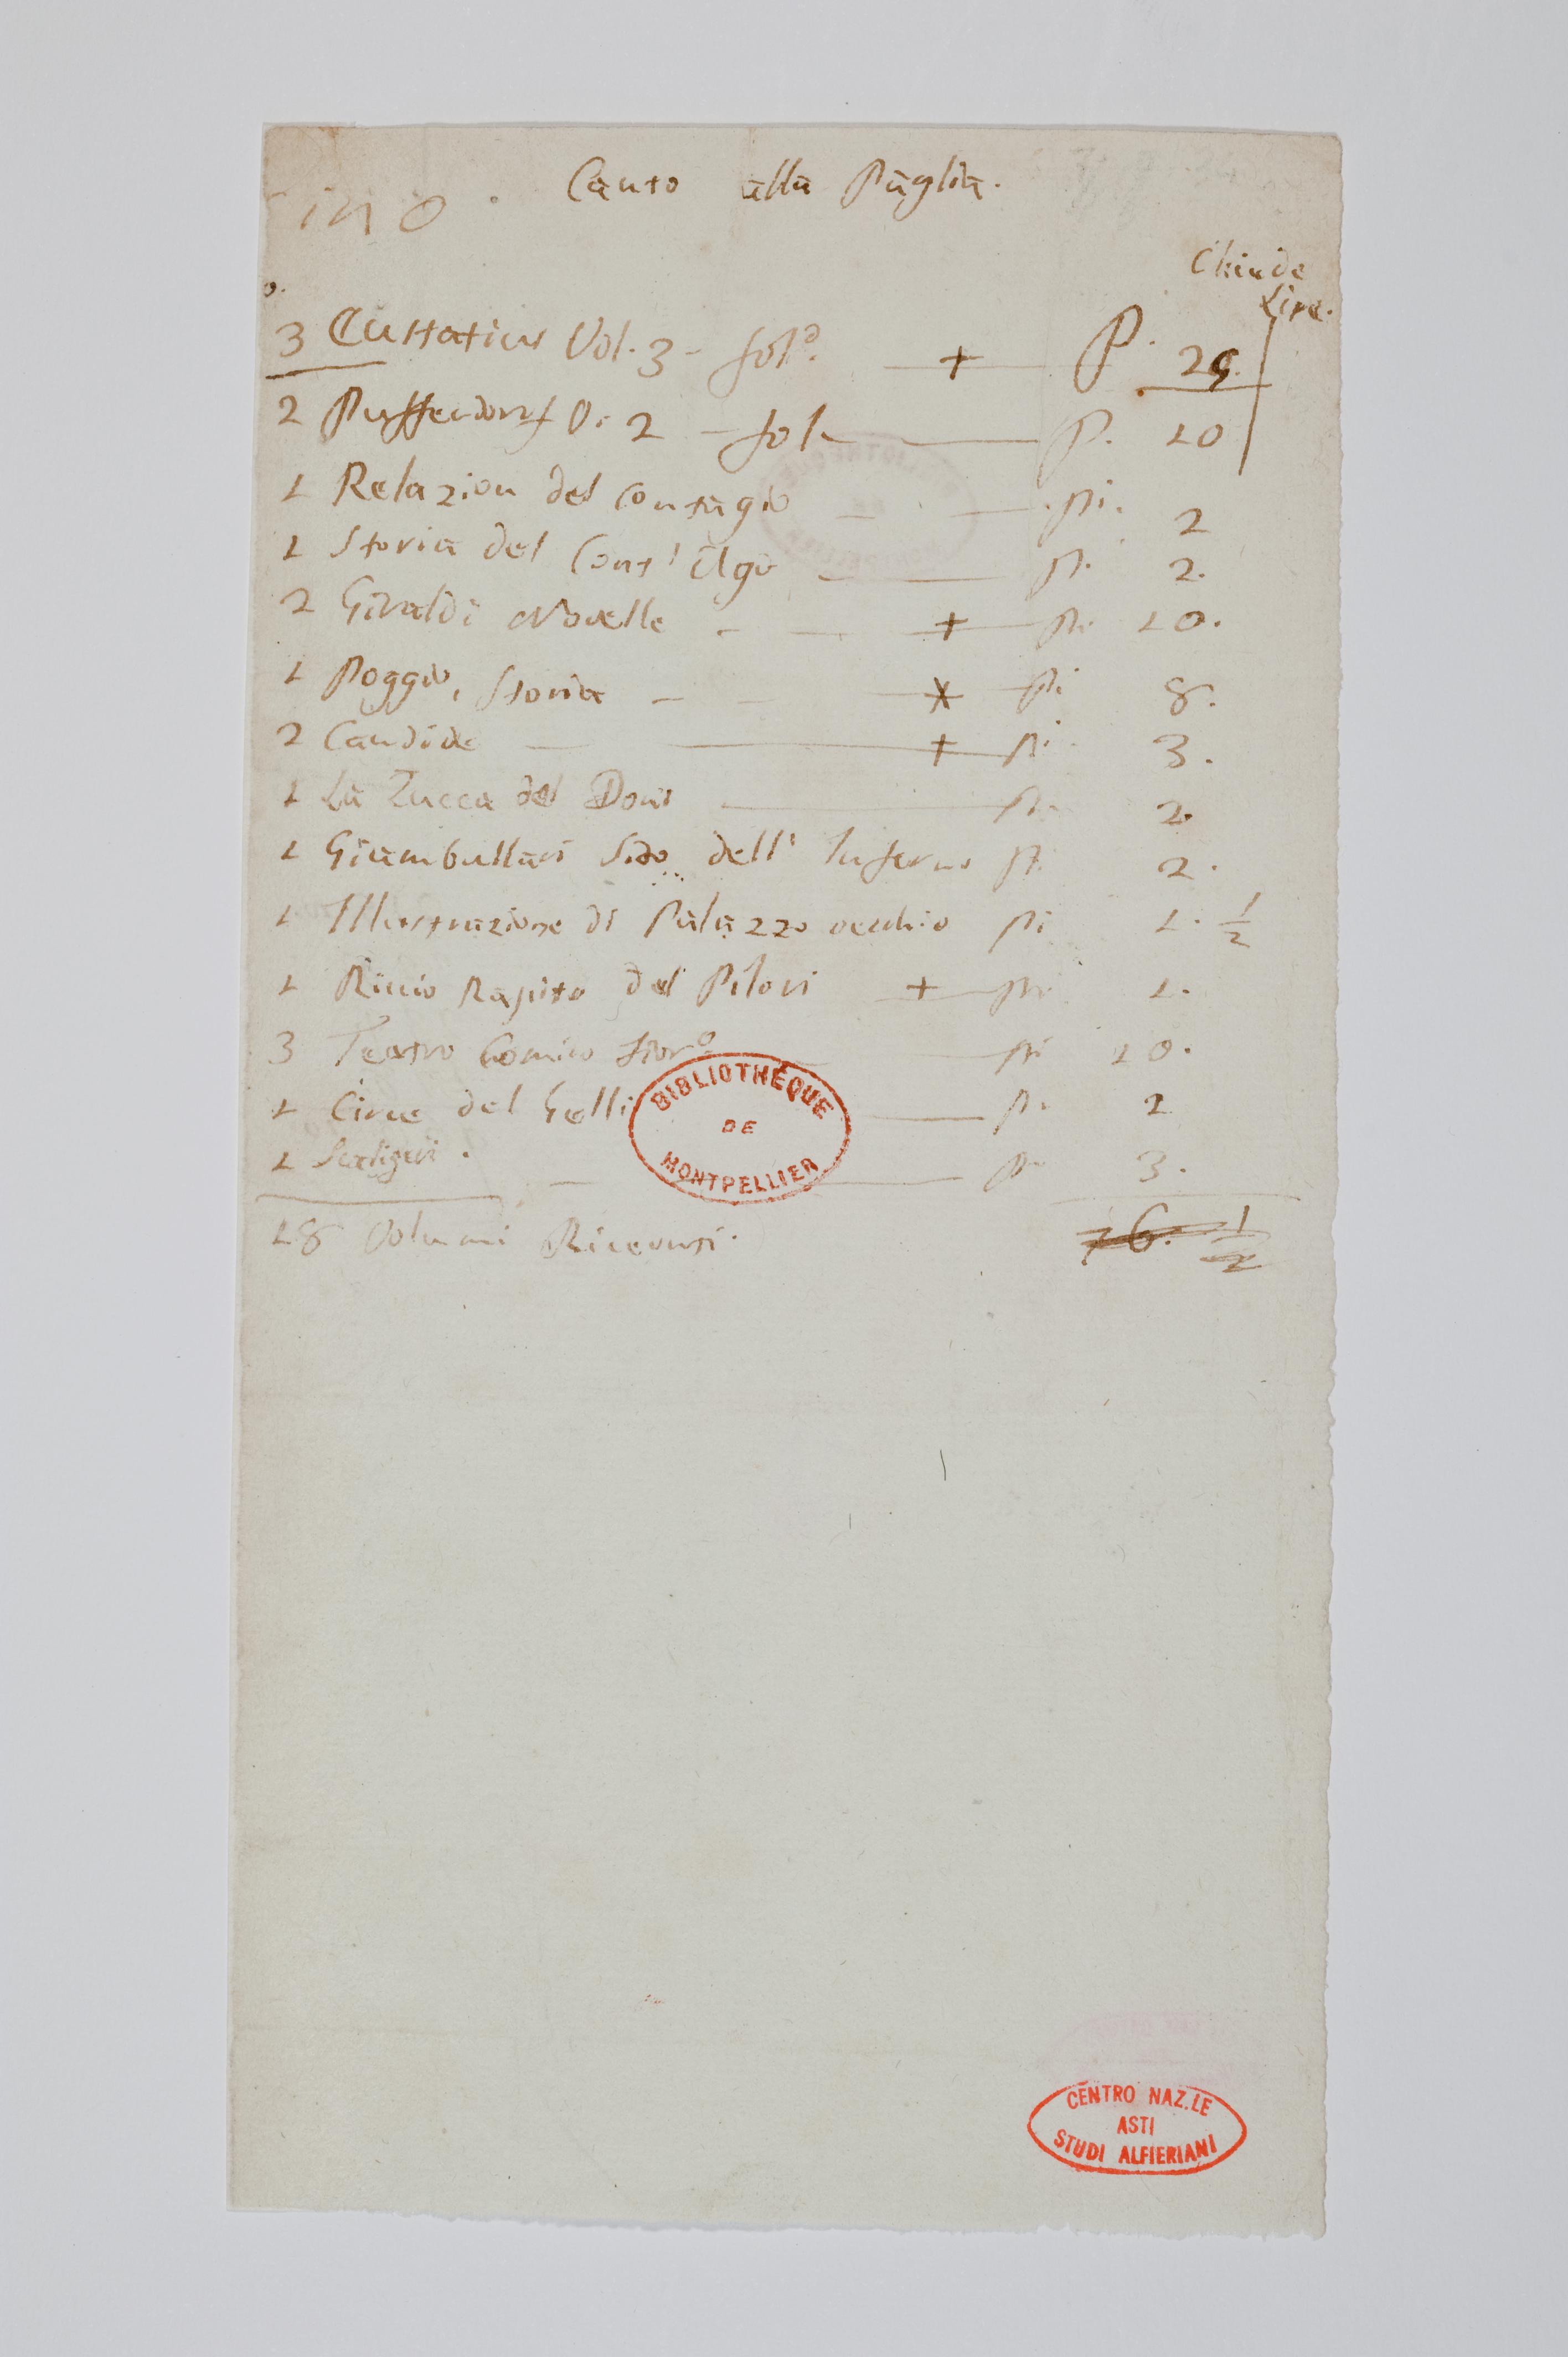 Canto alla Paglia.
ino.
Chiede
Lire.
3 Eustatius Vol. 3 - fol.o + P. 25.
2 Puffendorf V. 2 - fol. P. 10
1 Relazion del Contagio P. 2
1 Storia del P. 2.
2 Giraldi Novelle + P. 10.
1 Poggio, Storia P. 8.
2 Candide + P. 3.
1 La Zucca del Doni P. 2.
1 Giambullari Sito dell' Inferno P. 2.
1 Illustrazione di Palazzo vecchio P. 1. 1/2
1 Riccio Rapito del + P. 1.
3 Teatro Comico fior.o P. 10.
1 Circe del Gelli P. 2
1 Scaligeri. P. 3.
18 Volumi Ricevuti. 76. 1/2
BIBLIOTHÈQUE
DE
MONTPELLIER
CENTRO NAZ.LE
ASTI
STUDI ALFIERIANI